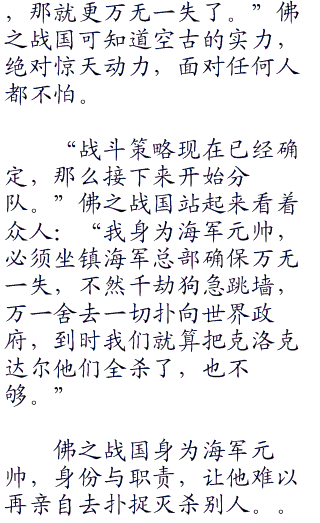 ，那就更万无一失了。”佛
之战国可知道空古的实力，
绝对惊天动力，面对任何人
都不怕。
“战斗策略现在已经确
定，那么接下来开始分
队。”佛之战国站起来看着
众人：“我身为海军元帅，
必须坐镇海军总部确保万无
一失，不然千劫狗急跳墙，
万一舍去一切扑向世界政
府，到时我们就算把克洛克
达尔他们全杀了，也不
够。”
佛之战国身为海军元
帅，身份与职责，让他难以
再亲自去扑捉灭杀别人。。